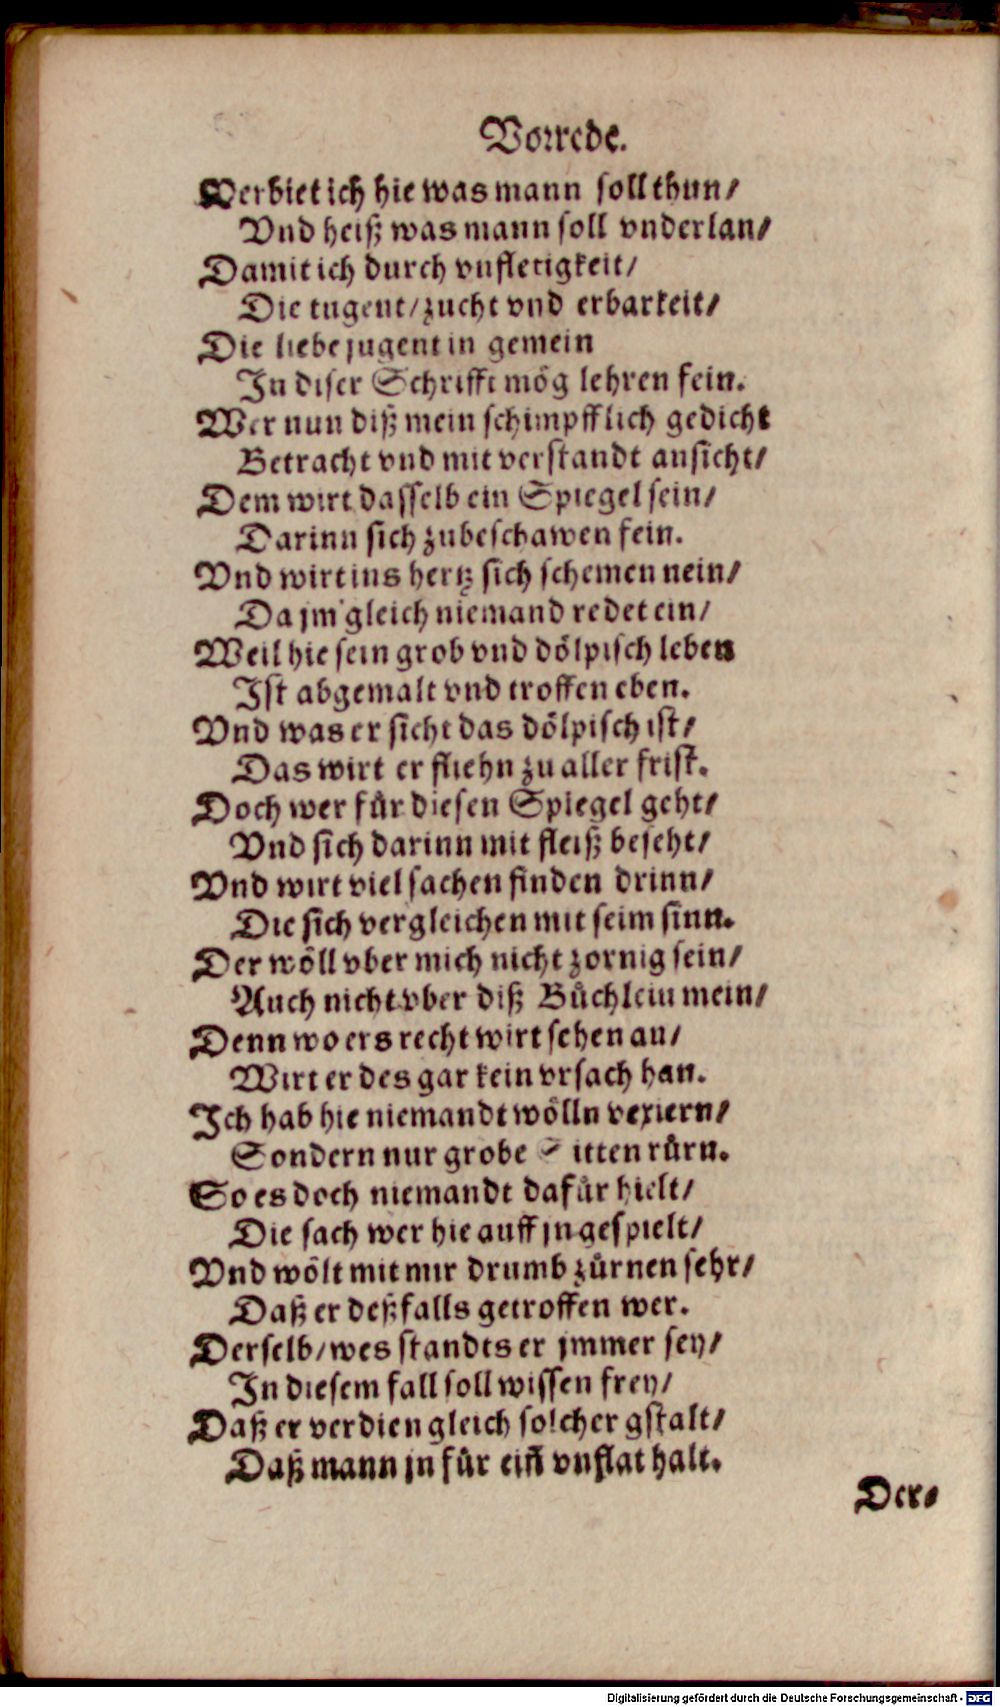 Vorrede.
Verbiet ich hie was mann soll thun/
Vnd heiß was mann soll vnderlan/
Damit ich durch vnfletigkeit/
Die tugent/ zucht vnd erbarkeit/
Die liebe jugent in gemein
In diser Schrifft mög lehren fein.
Wer nun diß mein schimpfflich gedicht
Betracht vnd mit verstandt ansicht/
Dem wirt dasselb ein Spiegel sein/
Darinn sich zubeschawen fein.
Vnd wirt ins hertz sich schemen nein/
Da jm gleich niemand redet ein/
Weil hie sein grob vnd dölpisch leben
Ist abgemalt vnd troffen eben.
Vnd was er sicht das dölpisch ist/
Das wirt er fliehn zu aller frist.
Doch wer für diesen Spiegel geht/
Vnd sich darinn mit fleiß beseht/
Vnd wirt viel sachen finden drinn/
Die sich vergleichen mit seim sinn.
Der wöll vber mich nicht zornig sein/
Auch nicht vber diß Büchlein mein/
Denn wo ers recht wirt sehen an/
Wirt er des gar kein vrsach han.
Ich hab hie niemandt wölln vexiern/
Sondern nur grobe Sitten rürn.
So es doch niemandt dafür hielt/
Die sach wer hie auff jn gespielt/
Vnd wölt mit mir drumb zürnen sehr/
Daß er deßfalls getroffen wer.
Derselb/ wes standts er jmmer sey/
In diesem fall soll wissen frey/
Daß er verdien gleich solcher gstalt/
Daß mann jn für ein̄ vnflat halt.
Der/
Digitalisierung gefördert durch die Deutsche Forschungsgemeinschaft - DFG